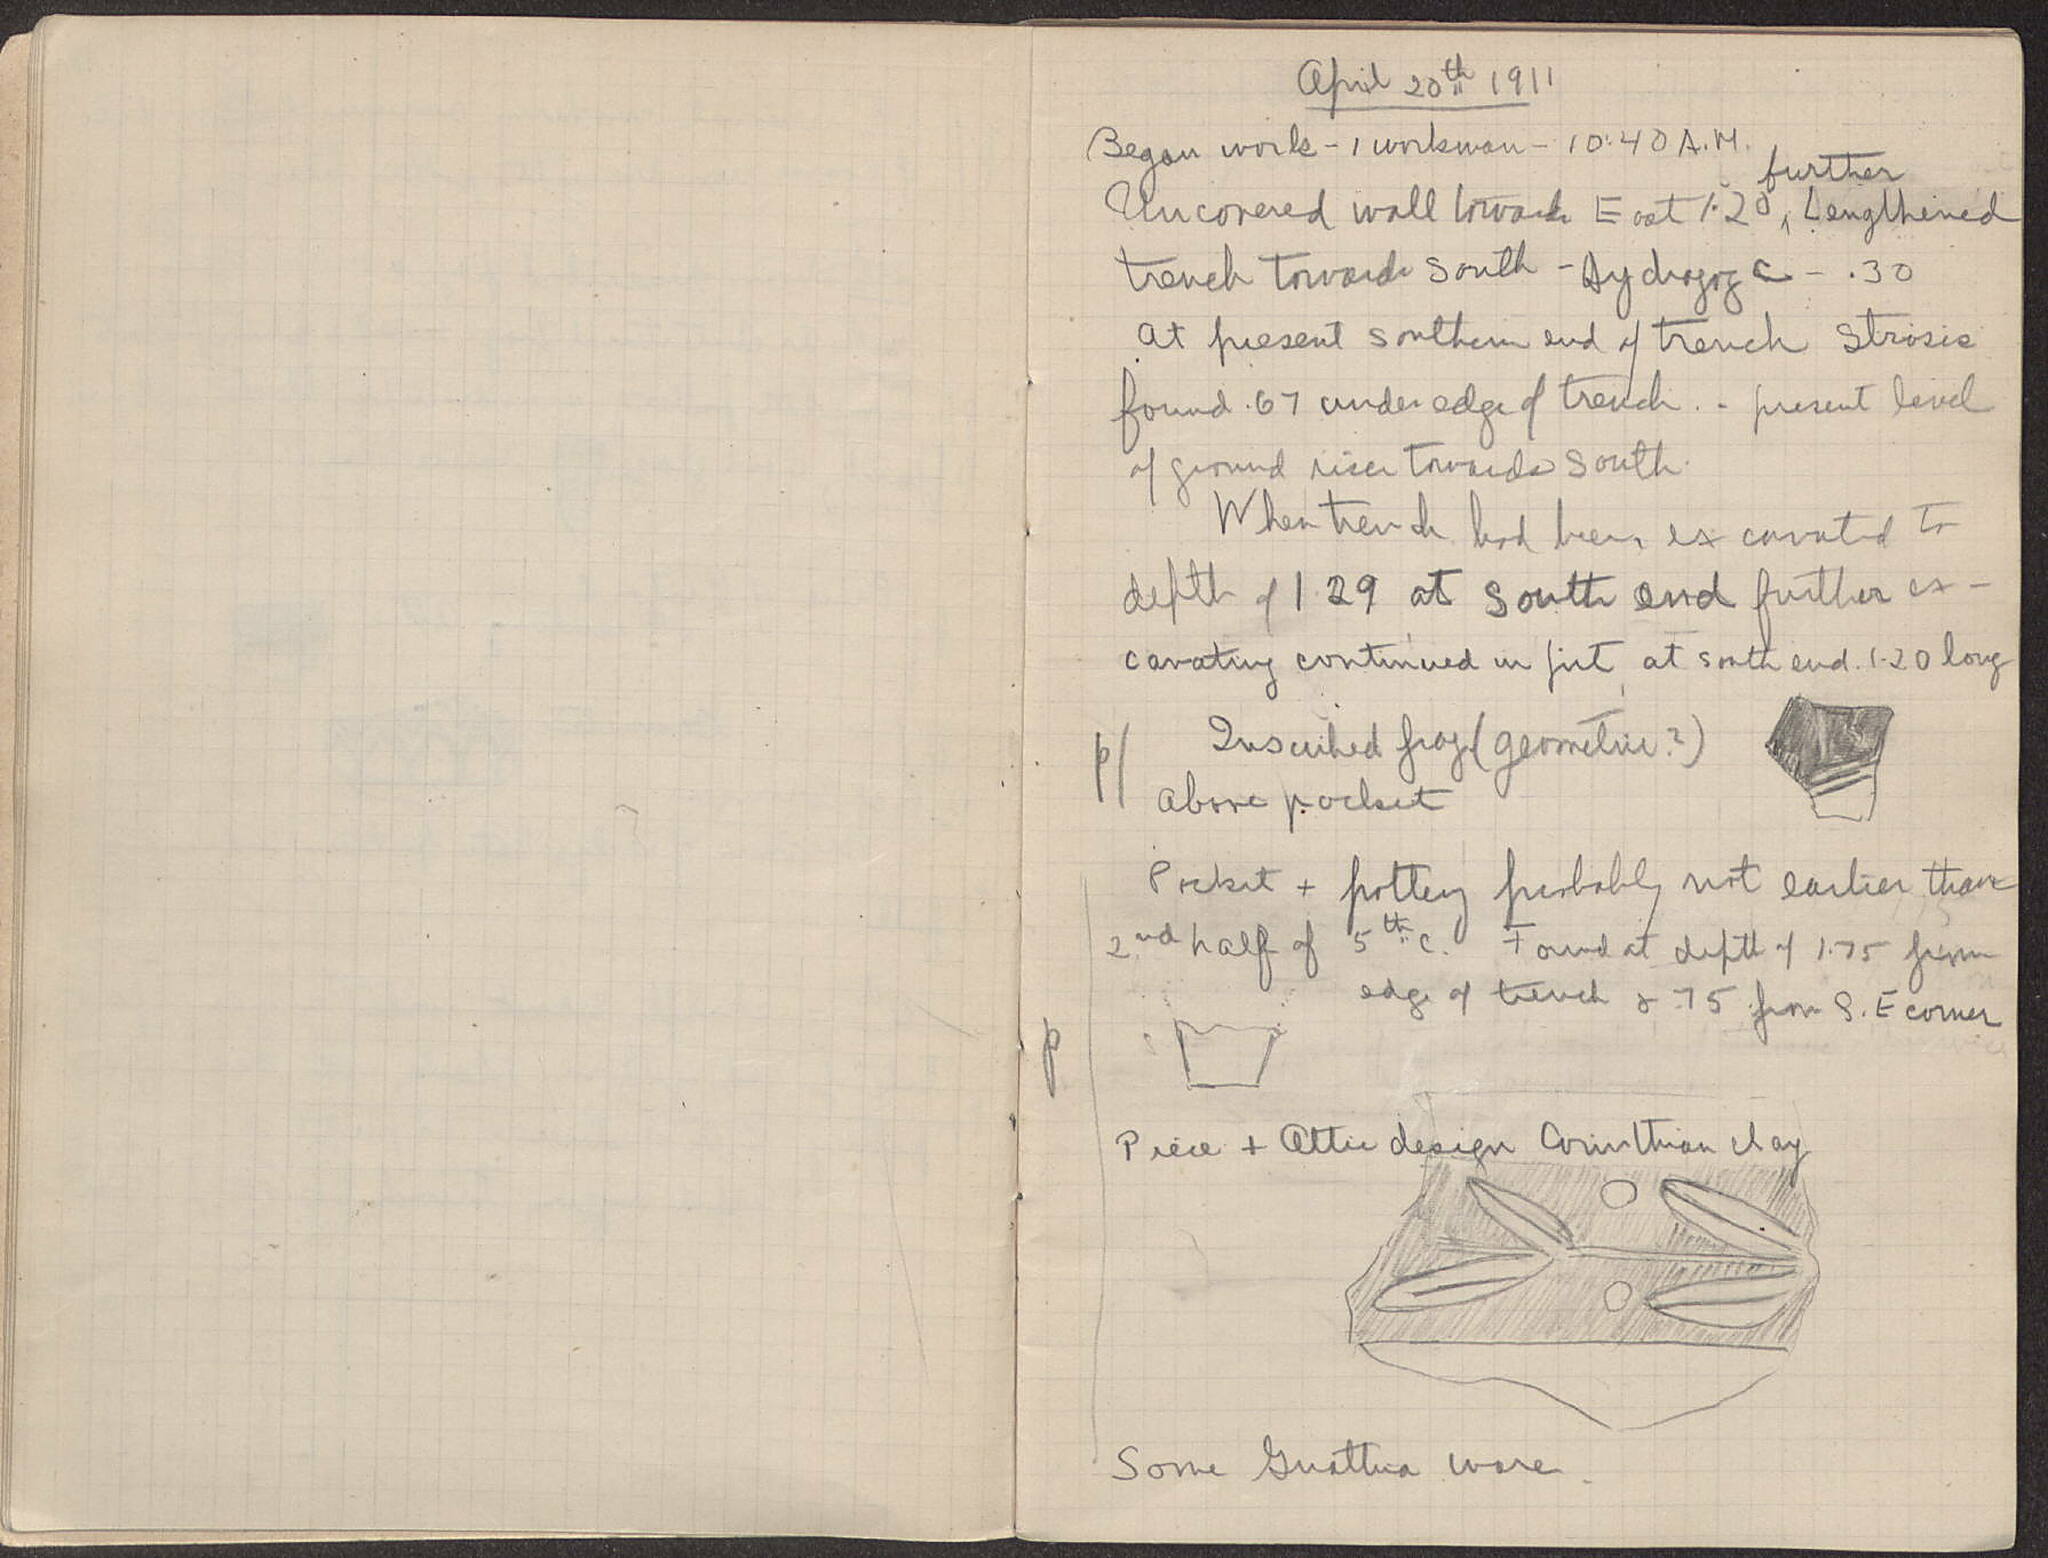 April 20th 1911
Began work - 1 workman - 10:40 A.M.
further
Uncovered wall towards East 1.20, Lengthened
trench towards South - - .30
at present southern end of trench Strosis
found .67 under edge of trench. - present level
of ground rises towards South.
When trench had been excavated to
depth of 1.29 at South end further ex-
cavating continued in pit at south end. 1.20 long
p/ Inscribed frag (geometric?)
above pocket
Pocket + pottery probably not earlier than
2nd half of 5th c. Found at depth of 1.75 from
edge of trench & .75 from S.E corner
p
Piece + Attic design Corinthian clay
Some Gnathia ware.